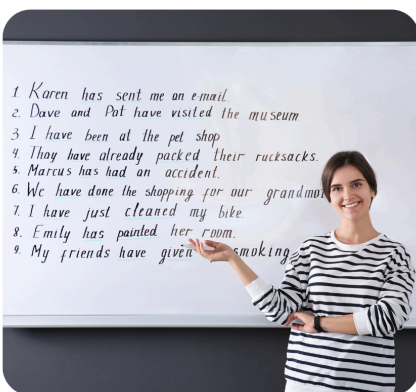 1. Karen has sent me an e-mail.
2. Dave and Pat have visited the museum
3 I have been at the pet shop
4. Thay have already packed their rucksacks.
5. Marcus has had an accident.
6. We have done the shopping for our grandmo
7. I have just cleaned my bike.
8. Emily has painted her room.
9. My friends have given smoking.